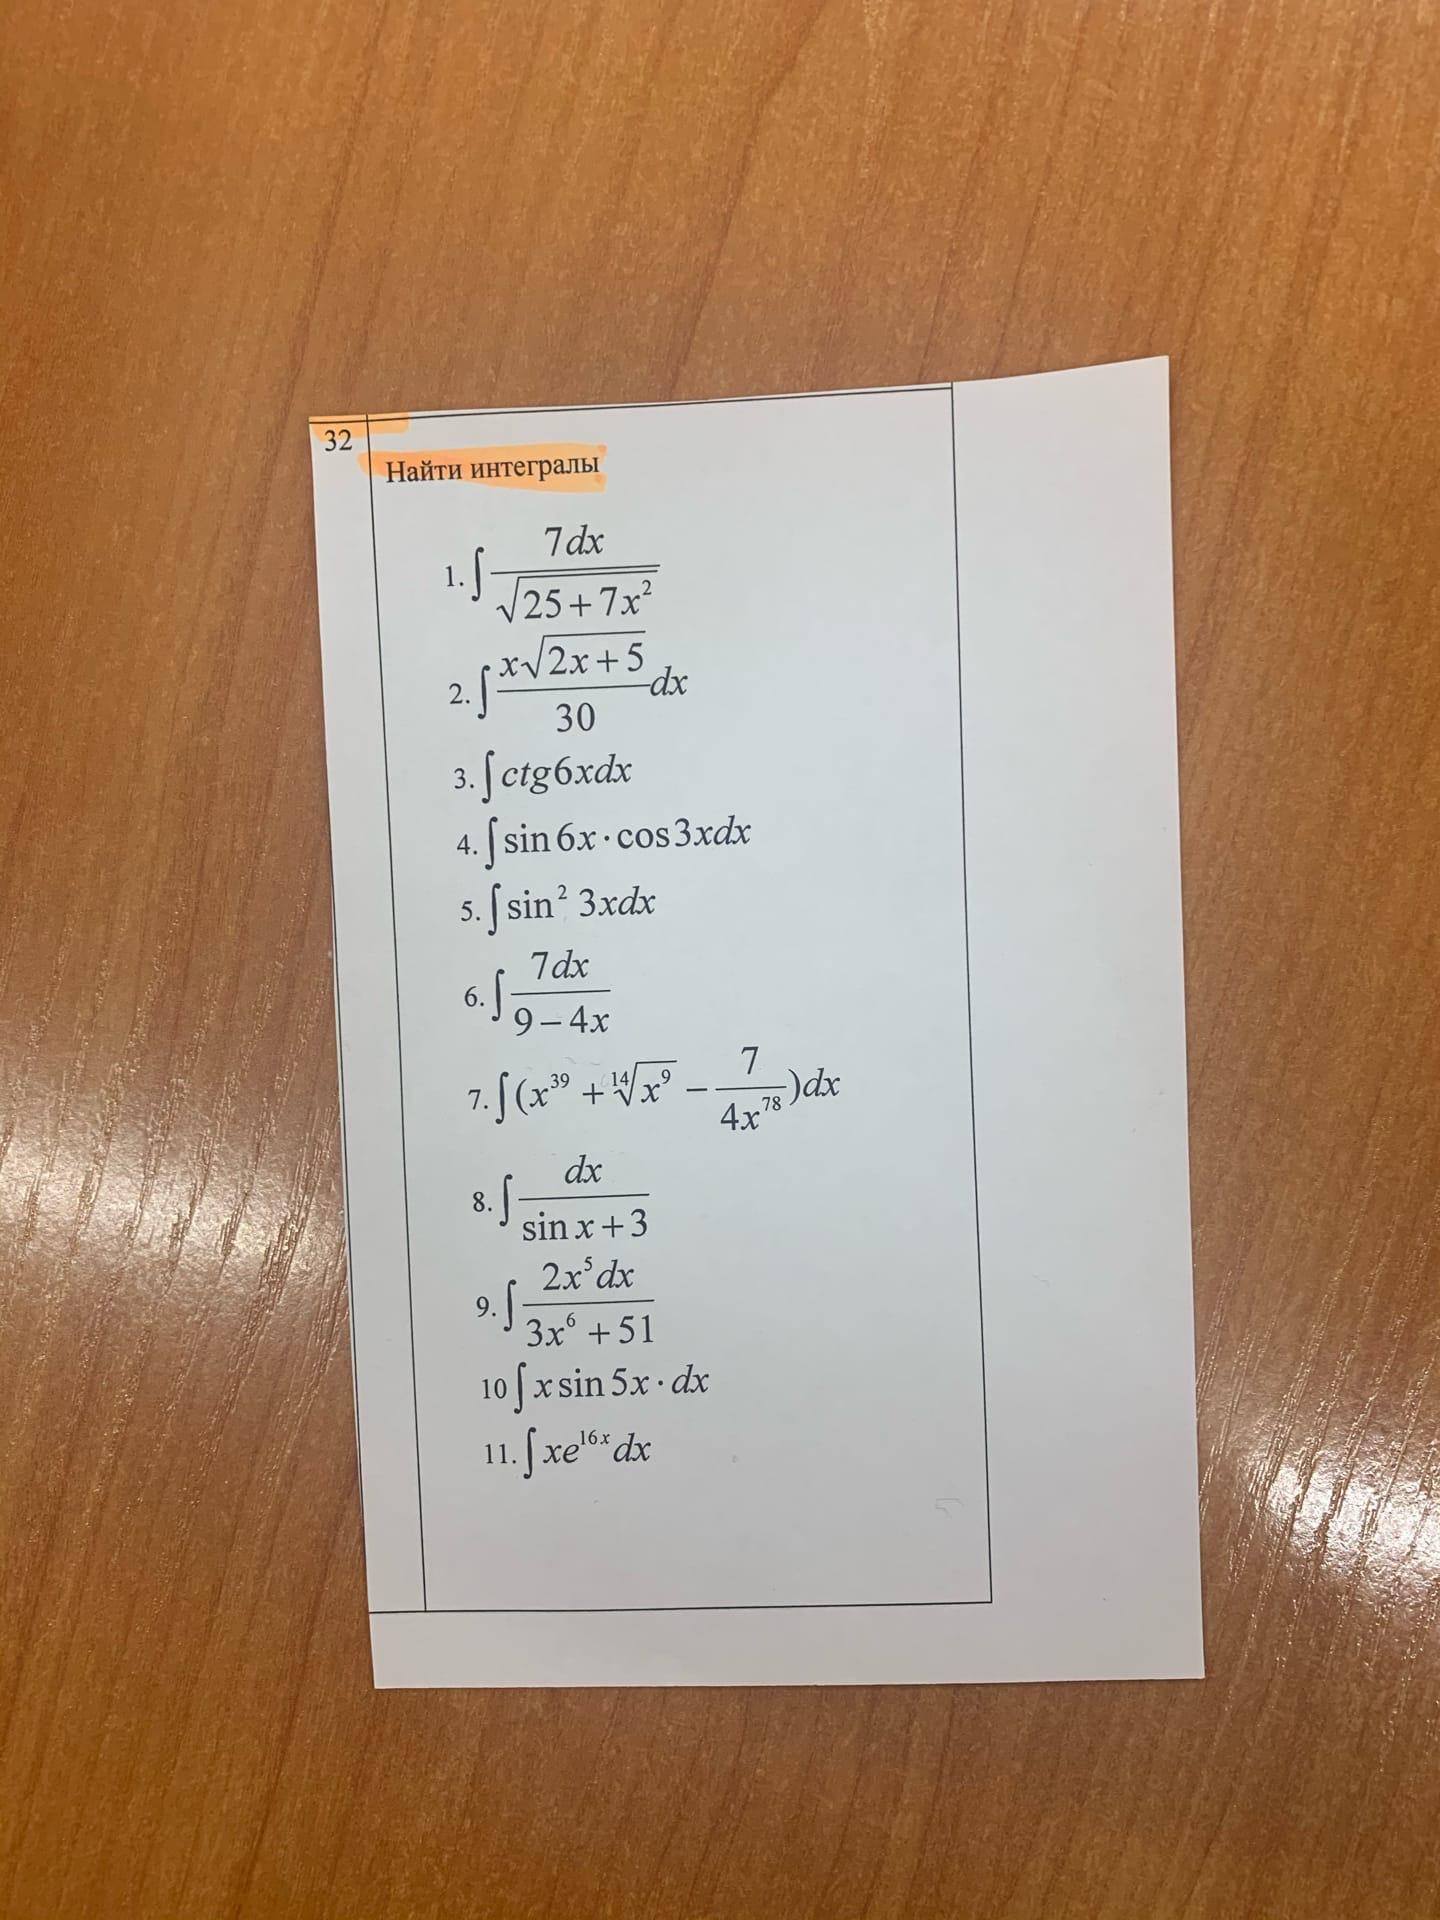 32
Найти интегралы
1. ∫ 7dx / √(25+7x²)
2. ∫ x√(2x+5) / 30 dx
3. ∫ ctg6xdx
4. ∫ sin6x·cos3xdx
5. ∫ sin² 3xdx
6. ∫ 7dx / (9–4x)
7. ∫(x³⁹ + ¹⁴√x⁹ – 7 / 4x⁷⁸)dx
8. ∫ dx / (sin x+3)
9. ∫ 2x⁵dx / (3x⁶ +51)
10 ∫ x sin5x·dx
11. ∫ xe¹⁶ˣdx